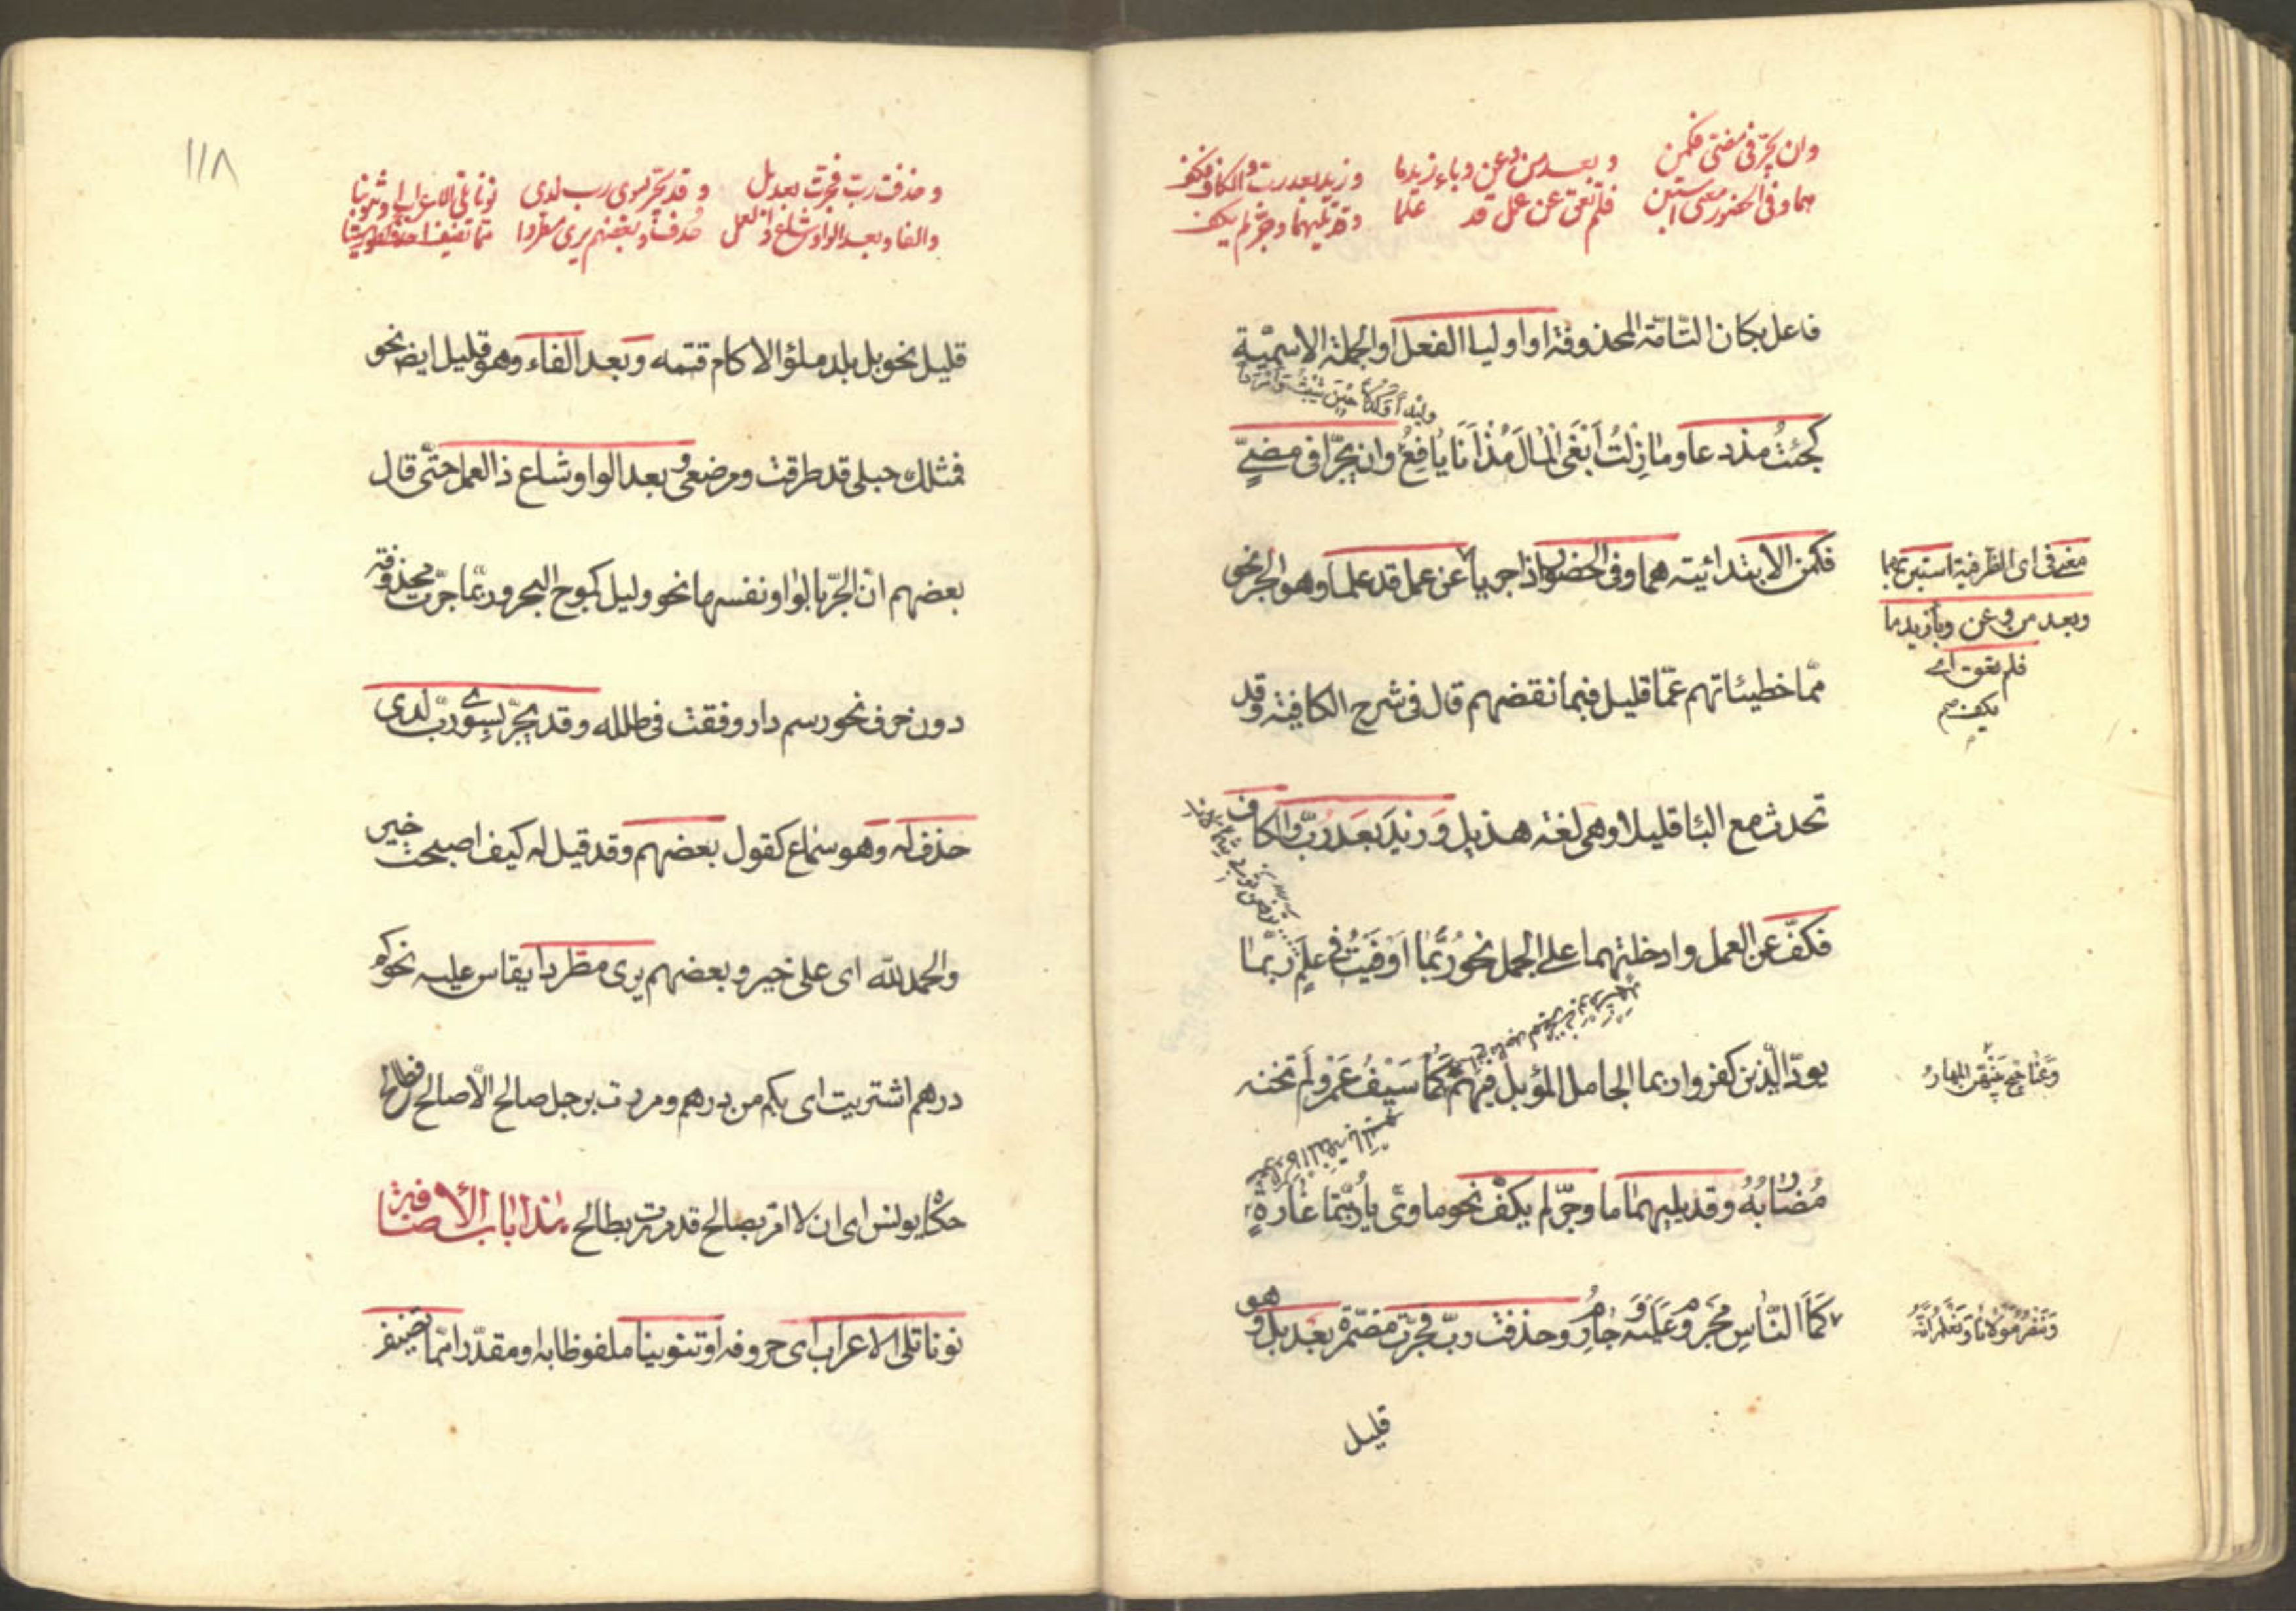 وان يجرا في مضي فكمن وبعد من وعن وباء زيد ما وزيد بعد رب والكاف فكف
هما وفي الحضور معنى في استبن فلم تعق عن عمل قد علما وقد يليهما وجر لم يكف
فاعل بكان التامة المحذوفة او اوليا الفعل او الجملة الاسمية
كجئتُ مذ دعا وما زلتُ ابغي المال مُذ انا يافعٌ وان يجرّا في مضيّ
فكمن الابتدائية هما وفي الحضور اذا جريا عن عمل قد علما وهو الجر نحو
مما خطيئاتهم عمّا قليل فبما نقضهم قال في شرح الكافية وقد
تحدث مع البا قليلا وهي لغة هذيل وزيد بعد ربّ والكاف
فكفّ عن العمل وادخلتهما على الجمل نحو ربّما اوفيتُ في علم ربما
يودّ الذين كفروا ربما الجامل المؤبل فيهم كما سيفُ عمرو لم تخنه
مضاربُهُ وقد يليهما ما وجرّ لم يكفّ نحو ماوىّ يا ربّتما غارةٍ
كما الناسِ مجروم عليه وجارم وحذفت ربّ فجرّت مضمرة بعد بل وهو
قليل
معنى في اى الظرفية استبن بهما
وبعد من وعن وبا زيد ما
فلم تعق اى
يكف صح
وعناجيج بينهن المهار
وننصر مولانا ونعلم انه
١١٨
وحذفت رب فجرت بعد بل وقد يجر بسوى رب لدى نونا تلي الاعراب او تنوينا
والفا وبعد الواو شاع ذا العمل حذف وبعضهم يرى مطردا مما تضيف احذف كطور سينا
قليل نحو بل بلد ملؤ الاكام قتمه وبعد الفاء وهو قليل ايض نحو
فمثلك حبلى قد طرقت ومرضعى وبعد الواو شاع ذا العمل حتّى قال
بعضهم انّ الجرّ بالواو نفسها نحو وليل كموج البحر وربّما جرّت محذوفة
دون حرف نحو رسم دار وقفت في طلله وقد يجرّ بسوى ربّ لدى
حذف له وهو سماع كقول بعضهم وقد قيل له كيف اصبحت خير
والحمد لله اى على خير وبعضهم يرى مطّردا يقاس عليه نحو كم
درهم اشتريت اى بكم من درهم ومررت برجل صالح الّا صالح فطالح
حكاه يونس اى ان لا امرّ بصالح قد مررت بطالح هذا باب الاضافة
نونا تلى الاعراب اى حروفه او تنوينا ملفوظا به او مقدّرا ممّا تضيف